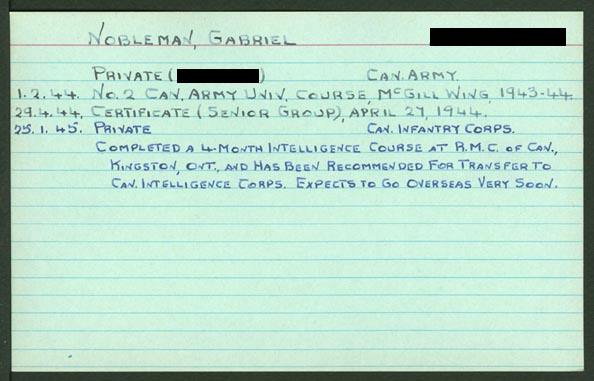 NOBLEMAN, GABRIEL
PRIVATE ( ) CAN. ARMY.
1.2.44. NO. 2 CAN. ARMY UNIV. COURSE, MCGILL WING, 1943-44.
29.4.44. CERTIFICATE (SENIOR GROUP), APRIL 27, 1944.
25.1.45. PRIVATE CAN. INFANTRY CORPS.
COMPLETED A 4-MONTH INTELLIGENCE COURSE AT R.M.C. OF CAN.,
KINGSTON, ONT., AND HAS BEEN RECOMMENDED FOR TRANSFER TO
CAN. INTELLIGENCE CORPS. EXPECTS TO GO OVERSEAS VERY SOON.